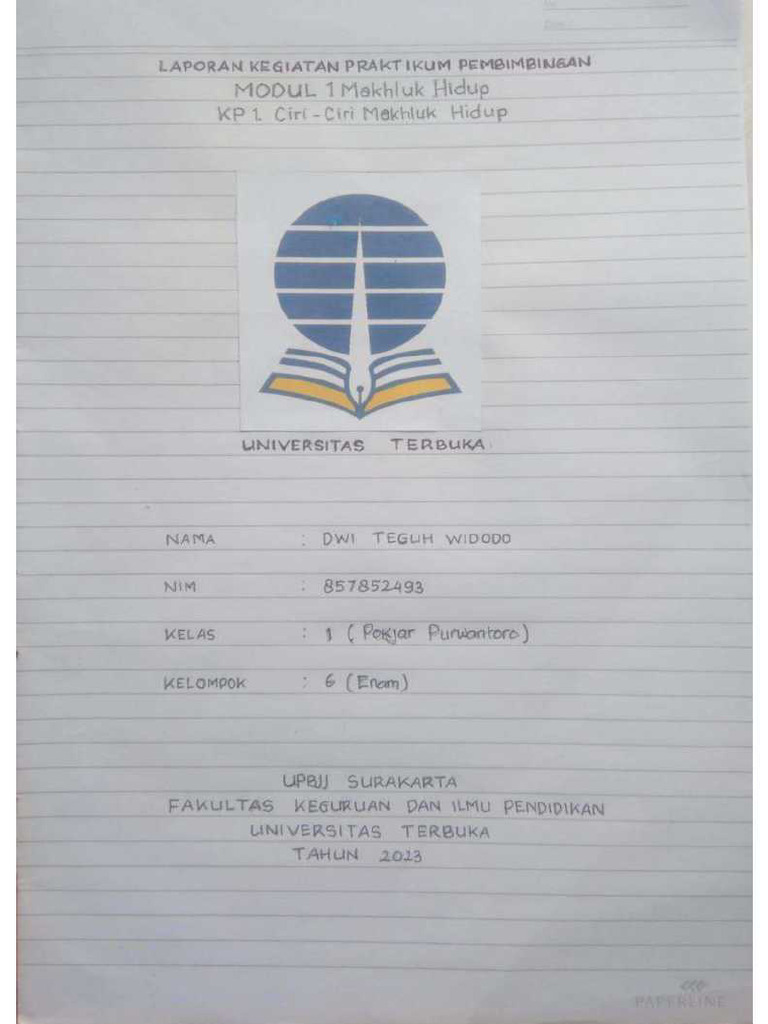 LAPORAN KEGIATAN PRAKTIKUM PEMBIMBINGAN
MODUL 1 Makhluk Hidup
KP 1. Ciri-Ciri Makhluk Hidup
UNIVERSITAS TERBUKA
NAMA : DWI TEGUH WIDODO
NIM : 857852493
KELAS : 1 (Pokjar Purwantoro)
KELOMPOK : 6 (Enam)
UPBJJ SURAKARTA
FAKULTAS KEGURUAN DAN ILMU PENDIDIKAN
UNIVERSITAS TERBUKA
TAHUN 2023
PAPERLINE